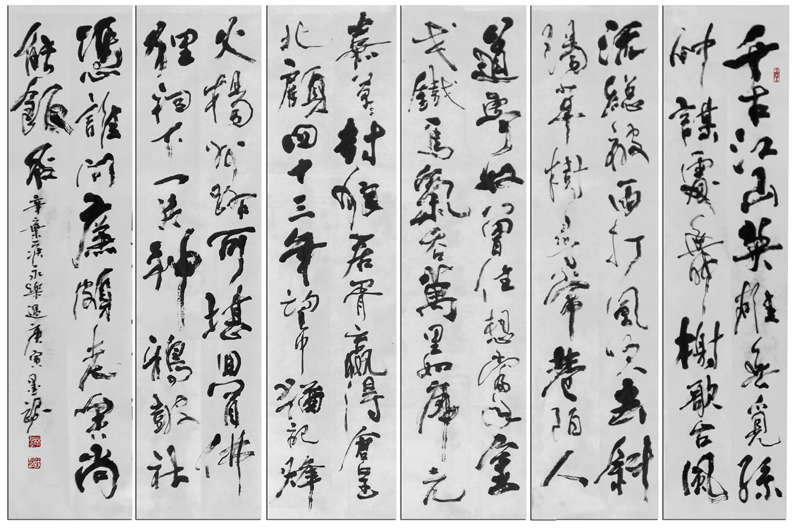 千古江山英雄無覓孫
仲謀處舞榭歌台風
流總被雨打風吹去斜
陽草樹尋常巷陌人
道寄奴曾住想當年金
戈鐵馬氣吞萬里如虎元
嘉草草封狼居胥贏得倉皇
北顧四十三年望中猶記烽
火揚州路可堪回首佛
狸祠下一片神鴉鼓社
憑誰問廉頗老矣尚
能飯否 辛棄疾永樂遇庚寅墨